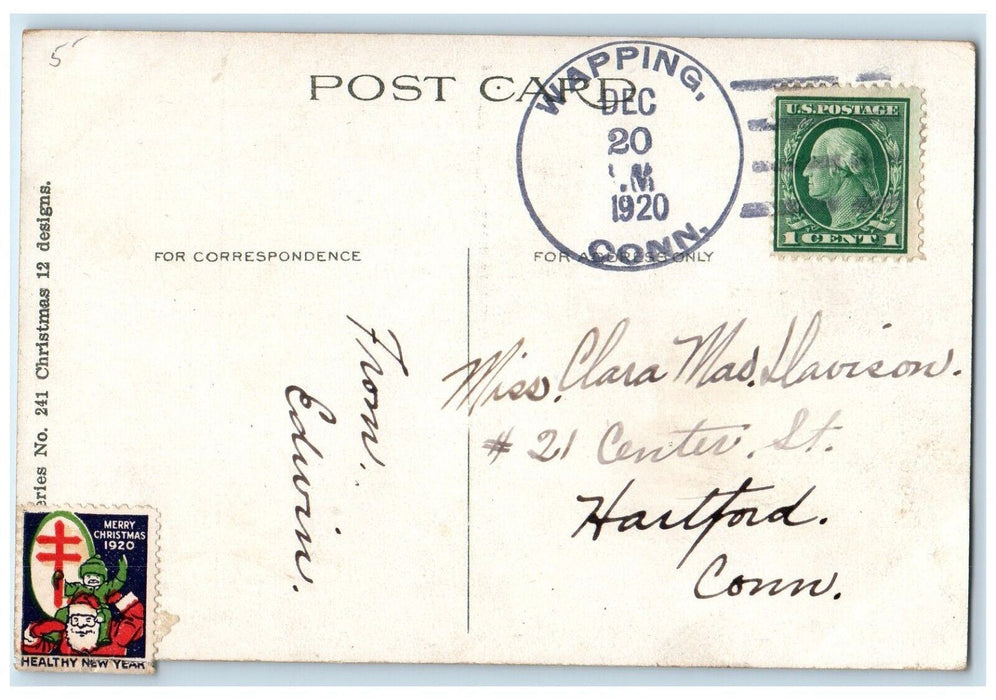 5
POST CARD
WAPPING,
DEC
20
.M
1920
CONN.
U.S. POSTAGE
1 CENT 1
FOR CORRESPONDENCE
FOR ADDRESS ONLY
eries No. 241 Christmas 12 designs.
From.
Edwin.
Miss. Clara Mad. Davison.
# 21 Center. St.
Hartford.
Conn.
MERRY
CHRISTMAS
1920
HEALTHY NEW YEAR